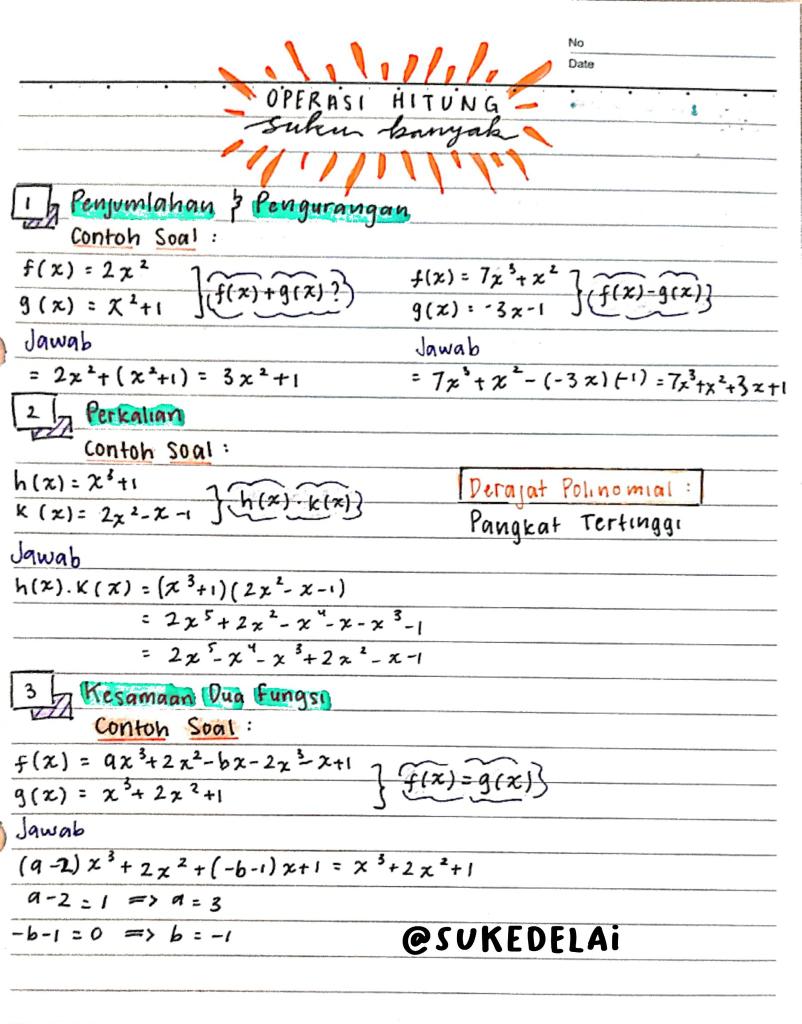 No
Date
OPERASI HITUNG
suku banyak
1 Penjumlahan & Pengurangan
Contoh Soal :
f(x) = 2x²
g(x) = x²+1
f(x)+g(x)?
f(x) = 7x³+x²
g(x) = -3x-1
f(x)-g(x)
Jawab
= 2x²+(x²+1) = 3x²+1
Jawab
= 7x³+x²-(-3x)(-1) = 7x³+x²+3x+1
2 Perkalian
Contoh Soal :
h(x) = x³+1
k(x) = 2x²-x-1
h(x).k(x)
Derajat Polinomial :
Pangkat Tertinggi
Jawab
h(x).k(x) = (x³+1)(2x²-x-1)
= 2x⁵+2x²-x⁴-x-x³-1
= 2x⁵-x⁴-x³+2x²-x-1
3 Kesamaan Dua Fungsi
Contoh Soal :
f(x) = ax³+2x²-bx-2x³-x+1
g(x) = x³+2x²+1
f(x)=g(x)
Jawab
(a-2)x³+2x²+(-b-1)x+1 = x³+2x²+1
a-2=1 => a=3
-b-1=0 => b=-1
@SUKEDELAi